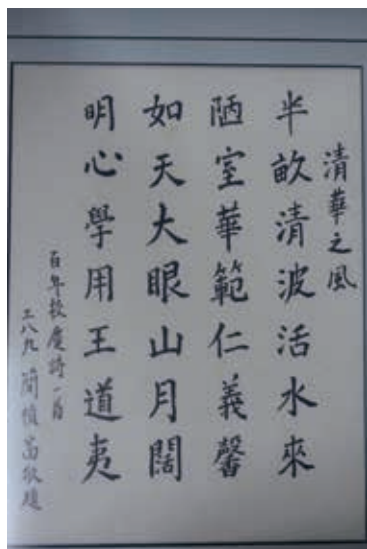 清華之風
半畝清波活水來
陋室華範仁義馨
如天大眼山月闊
明心學用王道夷
百年校慶詩一首
工八九 簡禎富敬題